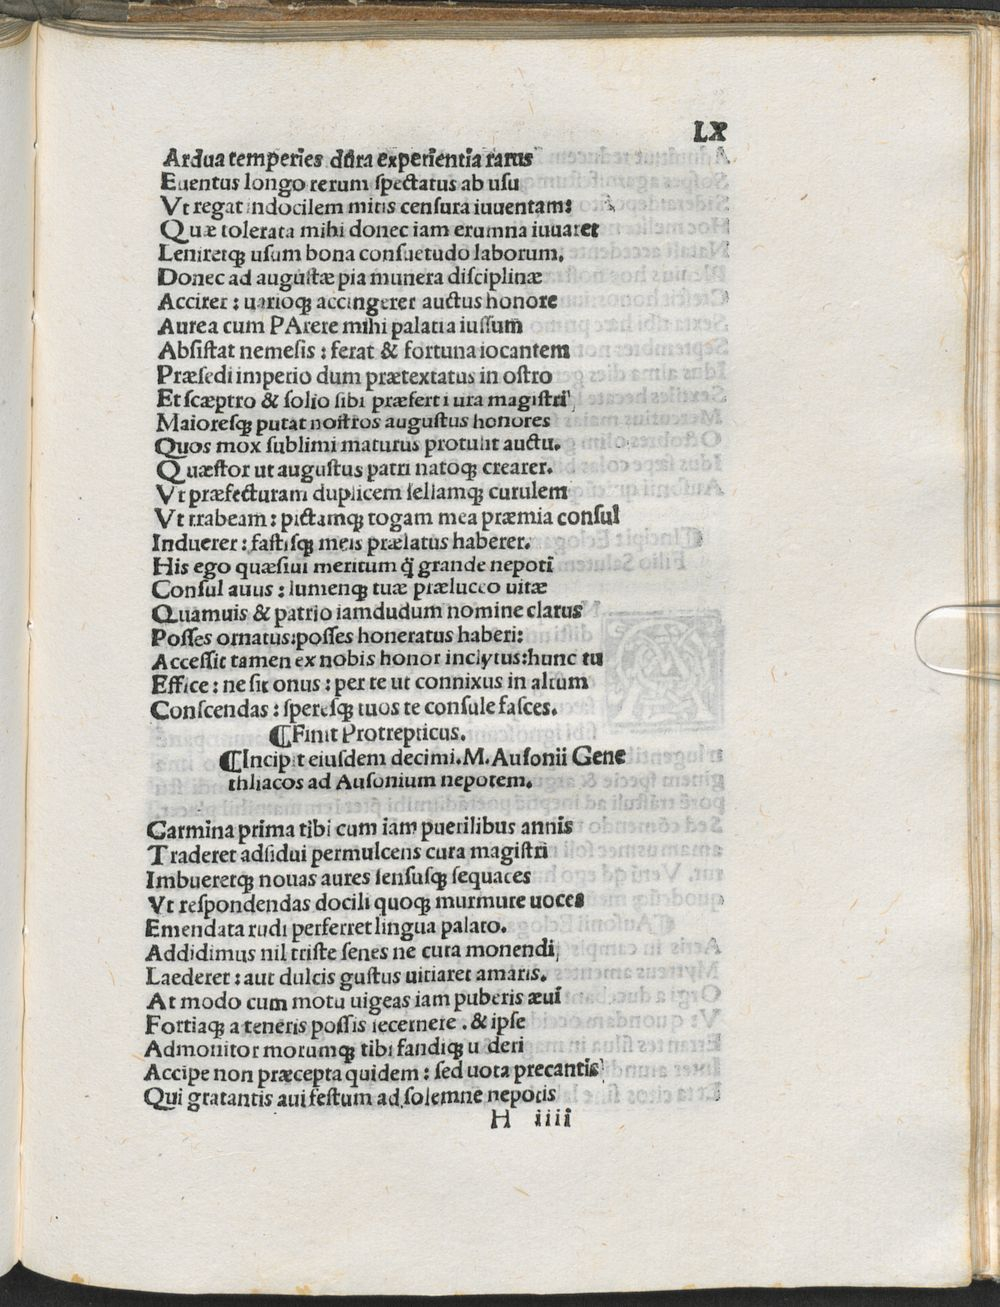 LX
Ardua temperies dura experientia rarus
Euentus longo rerum spectatus ab usu
Vt regat indocilem mitis censura iuuentam:
Quæ tolerata mihi donec iam erumna iuuaret
Leniretqꝫ usum bona consuetudo laborum.
Donec ad augustæ pia munera disciplinæ
Accirer: uarioqꝫ accingerer auctus honore
Aurea cum PArere mihi palatia iussum
Absistat nemesis: ferat & fortuna iocantem
Præsedi imperio dum prætextatus in ostro
Et scæptro & solio sibi præfert iura magistri
Maioresqꝫ putat nostros augustus honores
Quos mox sublimi maturus protulit auctu.
Quæstor ut augustus patri natoqꝫ crearer.
Vt præfecturam duplicem sellamqꝫ curulem
Vt trabeam: pictamqꝫ togam mea præmia consul
Induerer: fastisqꝫ meis prælatus haberer.
His ego quæsiui meritum q̃ grande nepoti
Consul auus: lumenqꝫ tuæ præluceo uitæ
Quamuis & patrio iamdudum nomine clarus
Posses ornatus: posses honeratus haberi:
Accessit tamen ex nobis honor inclytus: hunc tu
Effice: ne sit onus: per te ut connixus in altum
Conscendas: speresqꝫ tuos te consule fasces.
¶Finit Protrepticus.
¶Incipit eiusdem decimi. M. Ausonii Gene
thliacos ad Ausonium nepotem.
Carmina prima tibi cum iam puerilibus annis
Traderet adsidui permulcens cura magistri
Imbueretqꝫ nouas aures sensusqꝫ sequaces
Vt respondendas docili quoqꝫ murmure uoces
Emendata rudi perferret lingua palato.
Addidimus nil triste senes ne cura monendi
Laederet: aut dulcis gustus uitiaret amaris.
At modo cum motu uigeas iam puberis æui
Fortiaqꝫ a teneris possis secernere. & ipse
Admonitor morumqꝫ tibi fandiqꝫ u deri
Accipe non præcepta quidem: sed uota precantis
Qui gratantis aui festum ad solemne nepotis
H iiii